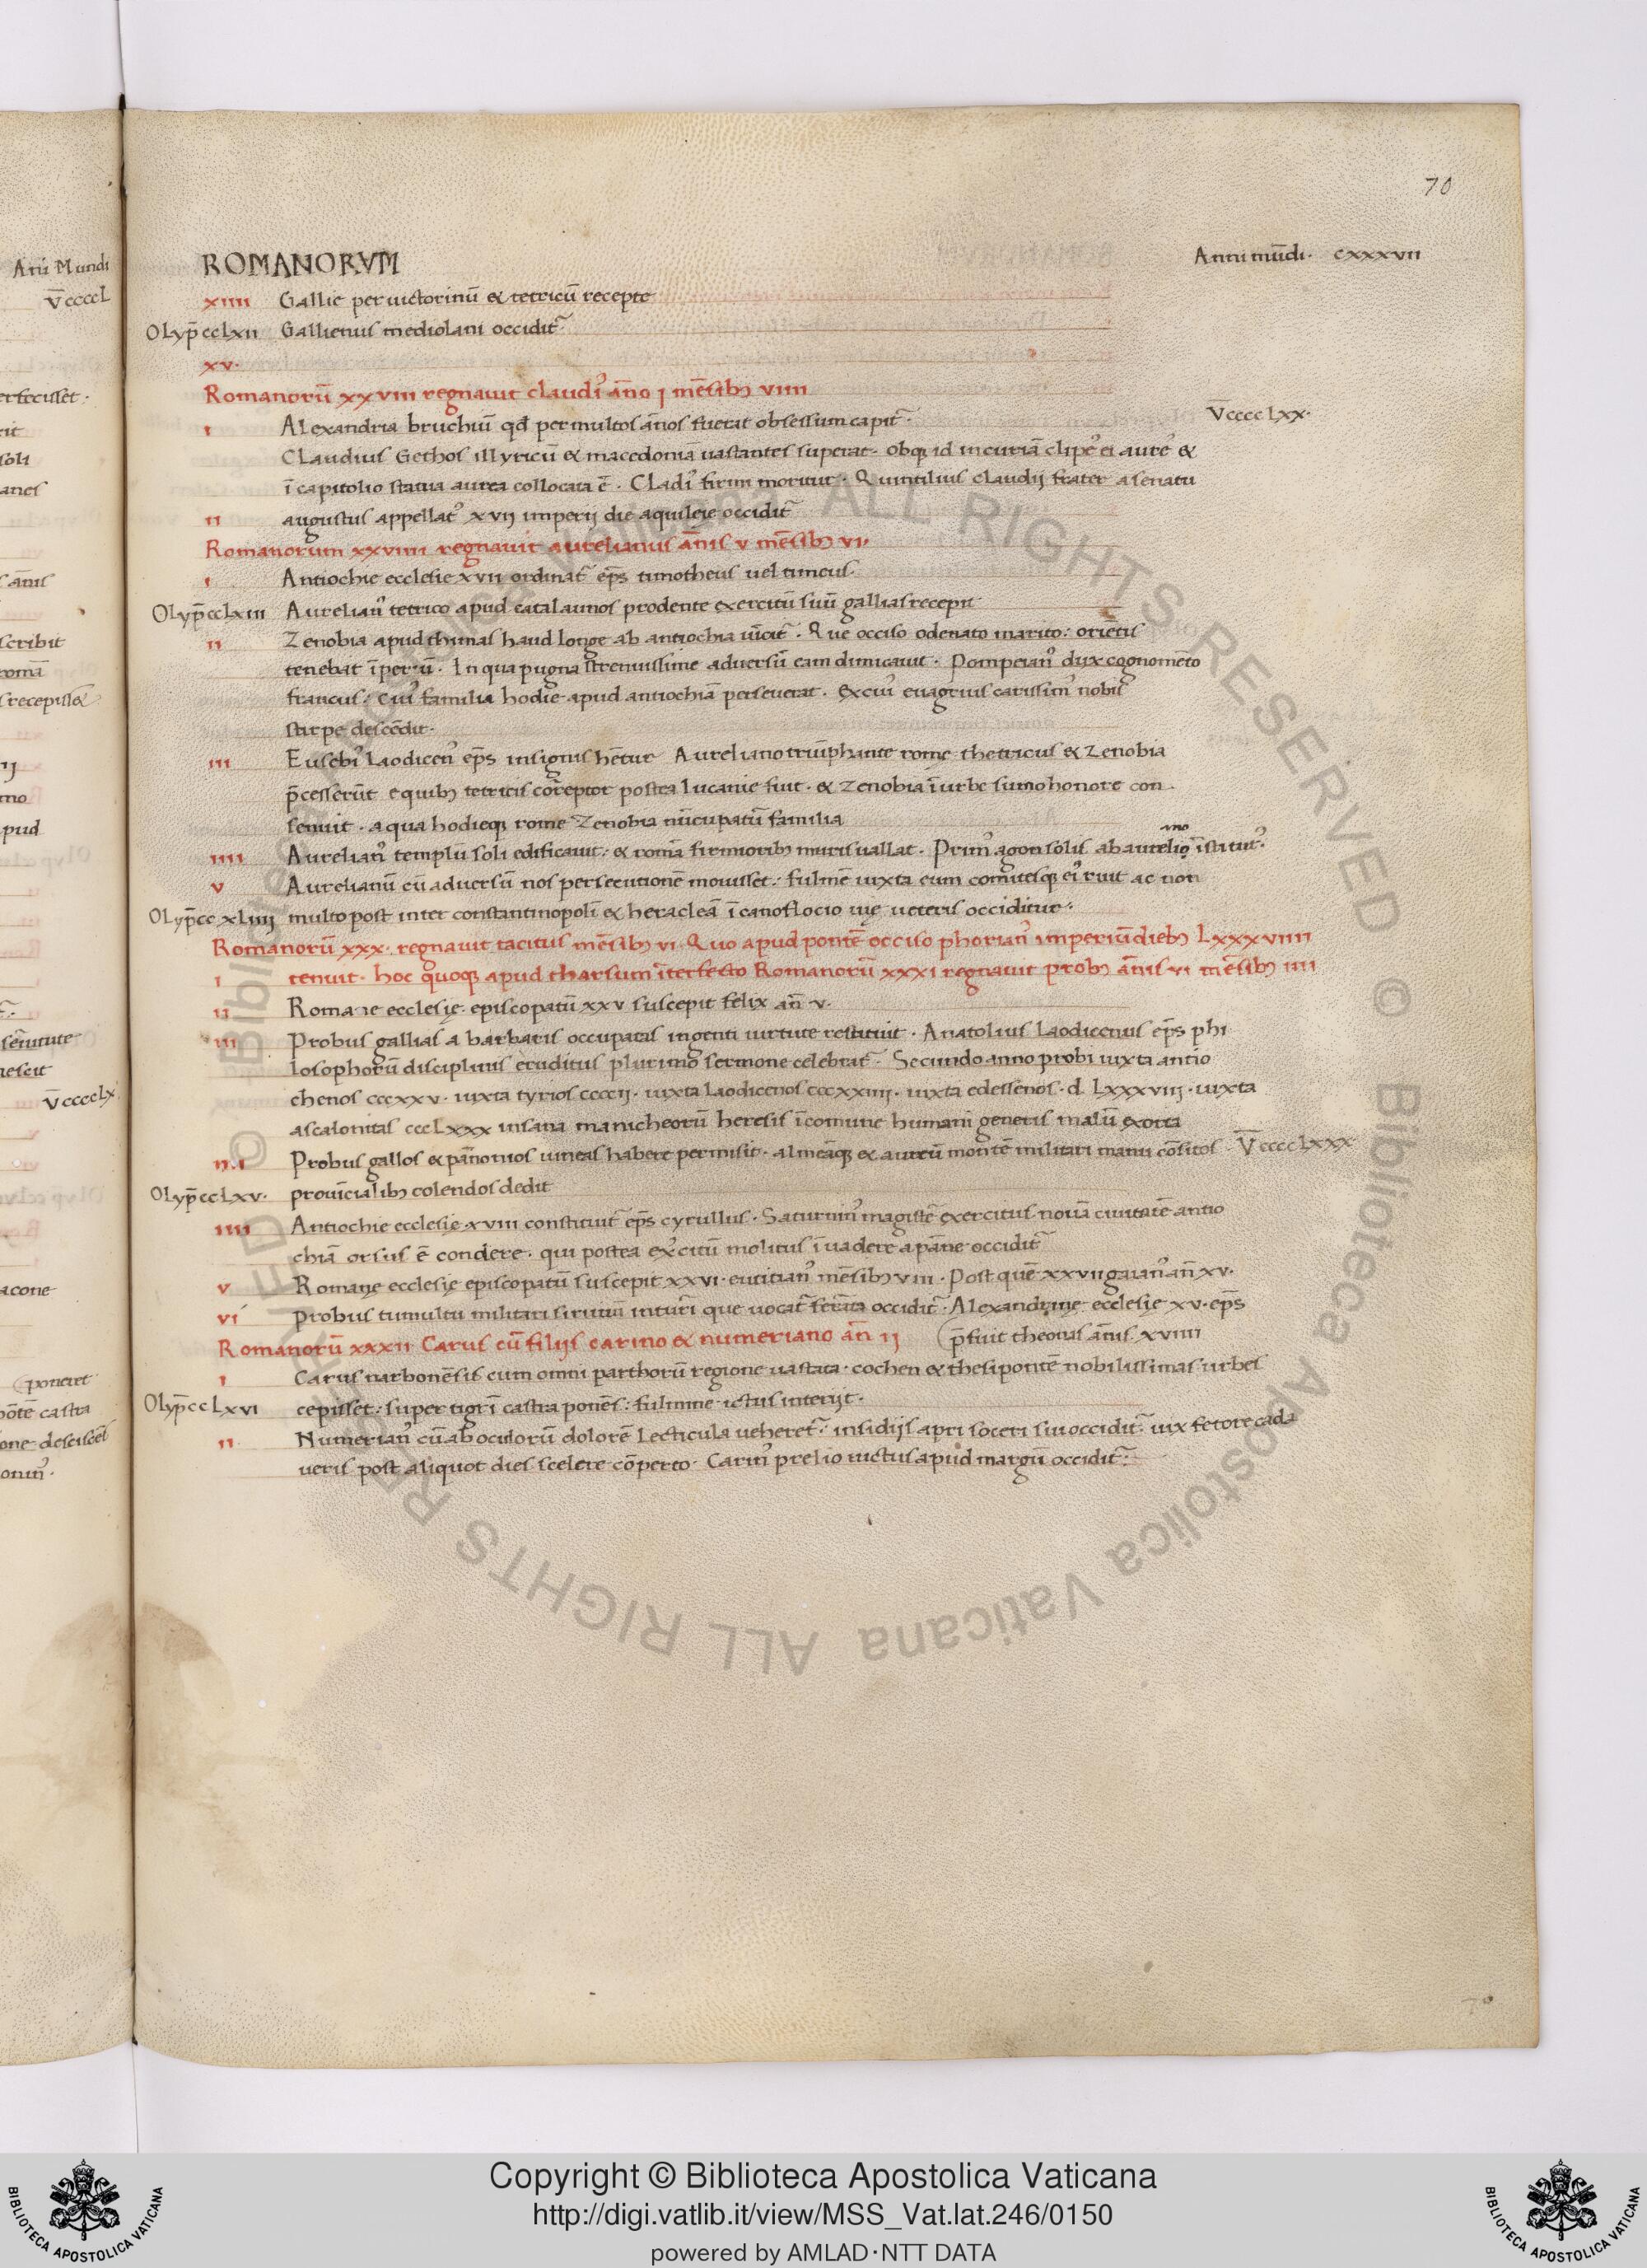 70
ROMANORVM Anni mūdi· cxxxvii
xiiii Gallie per uictorinū & tetricū recepte
OLyp̄ ccLxii Gallienus mediolani occidit᷑
xv·
Romanorū xxviii regnauit claudiꝰ āno i mēsibꝫ viiii
i ALexandria bruchiū qđ per multos ānos fuerat obsessum capit᷑· V̄ccccLxx·
CLaudius Gothos illyricū & macedoniā uastantes superat· obqꝫ id in curiā clipeꝰ ei aureꝰ &
ī capitolio statua aurea collocata ē· CLadiꝰ firim moritur· Quintilius claudij frater a senatu
ii augustus appellatꝰ xvij imperij die aquileie occidit᷑
Romanorum xxviiii regnauit aurelianus ānis v mēsibꝫ vi·
i Antiochie ecclesie xvii ordinat᷑ ep̄s timotheus uel timeus·
OLyp̄ ccLxiii Aurelianꝰ tetrico apud catalaunos prodente exercitū suū gallias recepit
ii Zenobia apud thimas haud longe ab antiochia uīcit᷑· Que occiso odenato marito: oriētis
tenebat īperiū· In qua pugna strenuissime aduersū eam dimicauit· Pompeianꝰ dux cognomēto
francus: cuiꝰ familia hodie apud antiochiā perseuerat· ex cuiꝰ euagrius carissimꝰ nobis
stirpe descēdit·
iii Eusebiꝰ laodicenꝰ ep̄s insignis hētur Aureliano triūphante rome thetricus & zenobia
p̄cesserūt e quibꝫ tetricus correptor postea lucanie fuit· & zenobia ī urbe sumo honore con
senuit· a qua hodieqꝫ rome zenobia nūcupatū familia
iiii Aurelianꝰ templū soli edificauit: & romā firmioribꝫ muris uallat· Primꝰ agon solis ab aurelio īstitutꝰ·
ano
v Aurelianū cū aduersū nos persecutionē mouisset: fulmē iuxta eum comitesqꝫ eiꝰ ruit ac non
OLyp̄ cc xLiiij multo post inter constantinopolī & heracleā ī canoflocio uię ueteris occiditur·
Romanorū xxx· regnauit tacitus mēsibꝫ vi· Quo apud pontē occiso phorianꝰ imperiū diebꝫ Lxxxviiii
i tenuit· hoc quoqꝫ apud tharsum īterfecto Romanorū xxxi regnauit probꝫ ānis vi mēsibꝫ iiii
ii Romane ecclesię episcopatū xxv suscepit felix an̄ v·
iii Probus gallias a barbaris occupatas ingenti uirtute restituit· Anatolius laodicenus ep̄s phi
losophorū disciplinis eruditus plurimo sermone celebrat᷑· Secundo anno probi iuxta antio
chenos cccxxv· iuxta tyrios ccccij· iuxta laodicenos cccxxiiii· iuxta edessenos· d Lxxxviij· iuxta
ascalonitas cccLxxx insana manicheorū heresis ī comune humani generis malū exorta
Probus gallos & pānonios uineas habere permisit· almeāqꝫ & aureū montē militari manu cōsitos V̄ccccLxxx
OLyp̄ ccLxv· prouīcialibꝫ colendos dedit
iiii Antiochie ecclesię xviii constituit᷑ ep̄s cyrullus· Saturninꝰ magistē exercitus nouā ciuitatē antio
chiā orsus ē condere· qui postea exꝰcitū molitus īuadere apāne occidit᷑
v Romane ecclesię episcopatū suscepit xxvi· euticianꝰ mēsibꝫ viii· Post quē xxvii gaianꝰ an̄ xv·
vi Probus tumultu militari sirmiū in turri que uocat᷑ ferrata occidit᷑· Alexandrine ecclesię xv· ep̄s
Romanorū xxxii Carus cū filijs carino & numeriano an̄ ij p̄fuit theonas ānis xviiii
i Carus narbonēsis cum omni parthorū regione uastata· cochen & thesipontē nobilissimas urbes
OLyp̄ ccLxvi cepisset: super tigrī castra ponēs: fulmine ictus interijt·
ii Numerianꝰ cū ab oculorū dolorē lecticula ueheret᷑: insidijs apri soceri sui occidit᷑ uix fetore cada
ueris post aliquot dies scelere cōperto· Carinꝰ prelio uictus apud margū occidit᷑·
Copyright © Biblioteca Apostolica Vaticana
http://digi.vatlib.it/view/MSS_Vat.lat.246/0150
powered by AMLAD·NTT DATA
BIBLIOTECA APOSTOLICA VATICANA
BIBLIOTECA APOSTOLICA VATICANA